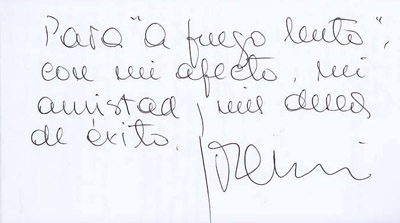 Para "A fuego lento",
con mi afecto, mi
amistad y mis deseos
de éxito.